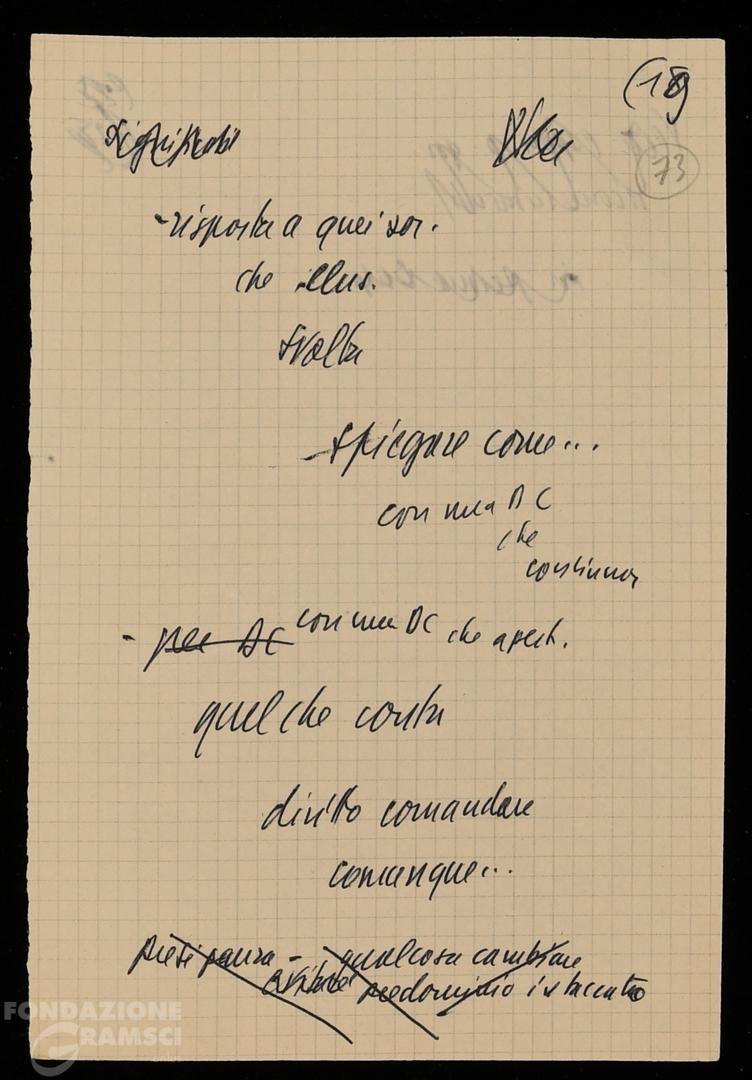 (18)
73
-risposta a quei sor.
che illus.
svolta
-spiegare come...
con una DC
che
continua
- per DC con una DC che apert.
quel che conta
diritto comandare
comunque...
presi paura - qualcosa cambiare
predominio intaccato
FONDAZIONE
GRAMSCI